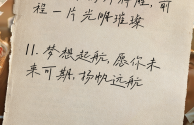 程一片光明璀璨
11.梦想起航,愿你未
来可期,扬帆远航